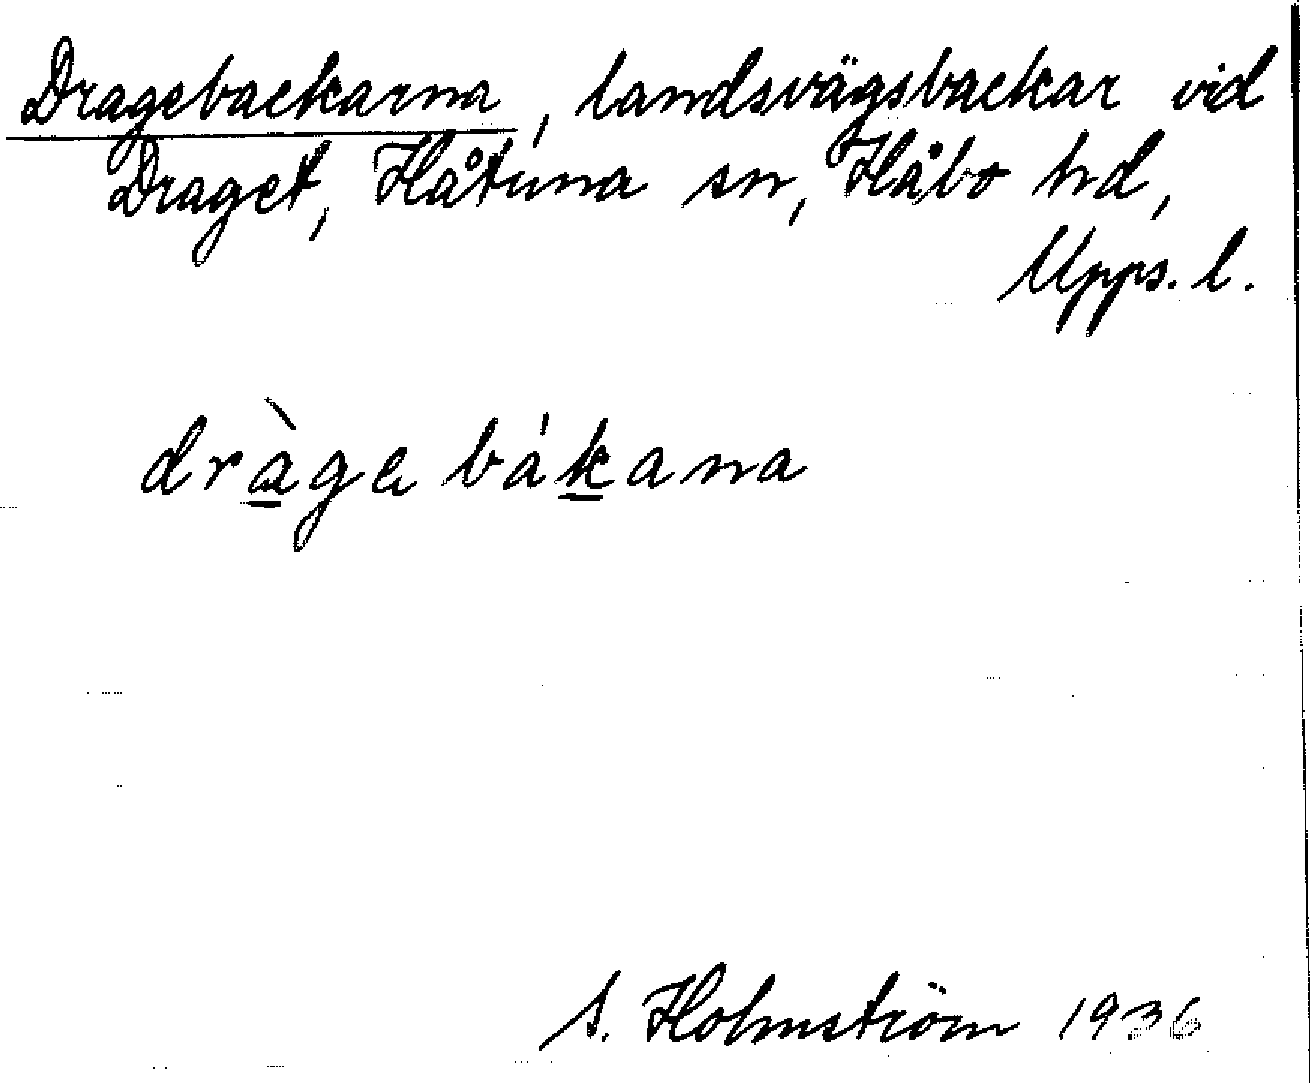 Dragebackarna, landsvägsbackar vid
Draget, Håtuna sn, Håbo hd,
Upps. l.
dràge bákana
S. Holmström 1936